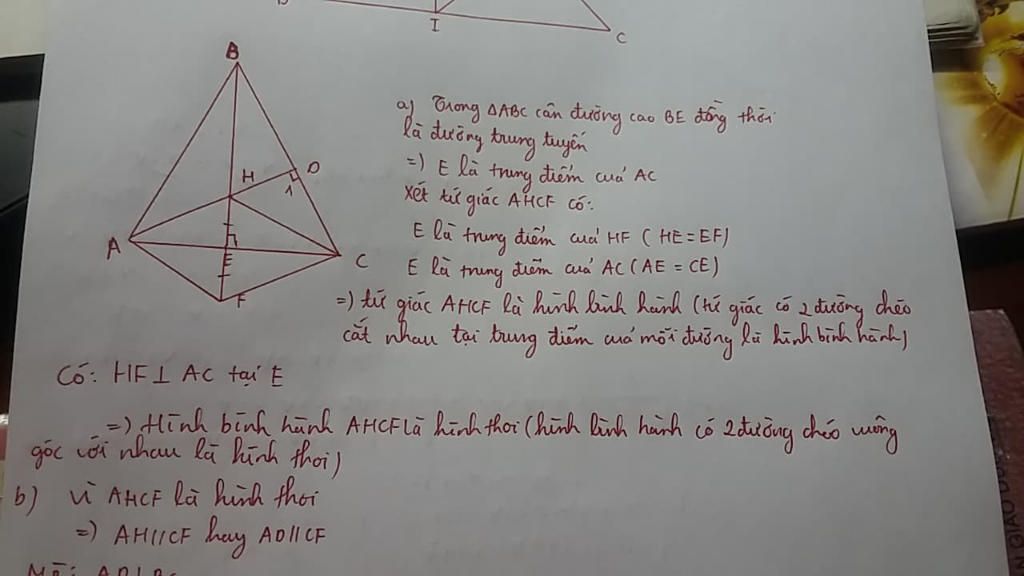 I
C
B
H
D
1
A
E
C
F
a) Trong ΔABC cân đường cao BE đồng thời
là đường trung tuyến
=) E là trung điểm của AC
Xét tứ giác AHCF có:
E là trung điểm của HF (HE=EF)
E là trung điểm của AC (AE = CE)
=) tứ giác AHCF là hình bình hành (tứ giác có 2 đường chéo
cắt nhau tại trung điểm của mỗi đường là hình bình hành)
Có: HF ⊥ AC tại E
=) Hình bình hành AHCF là hình thoi (hình bình hành có 2 đường chéo vuông
góc với nhau là hình thoi)
b) Vì AHCF là hình thoi
=) AH // CF hay AD // CF
Mà: AD ⊥ BC